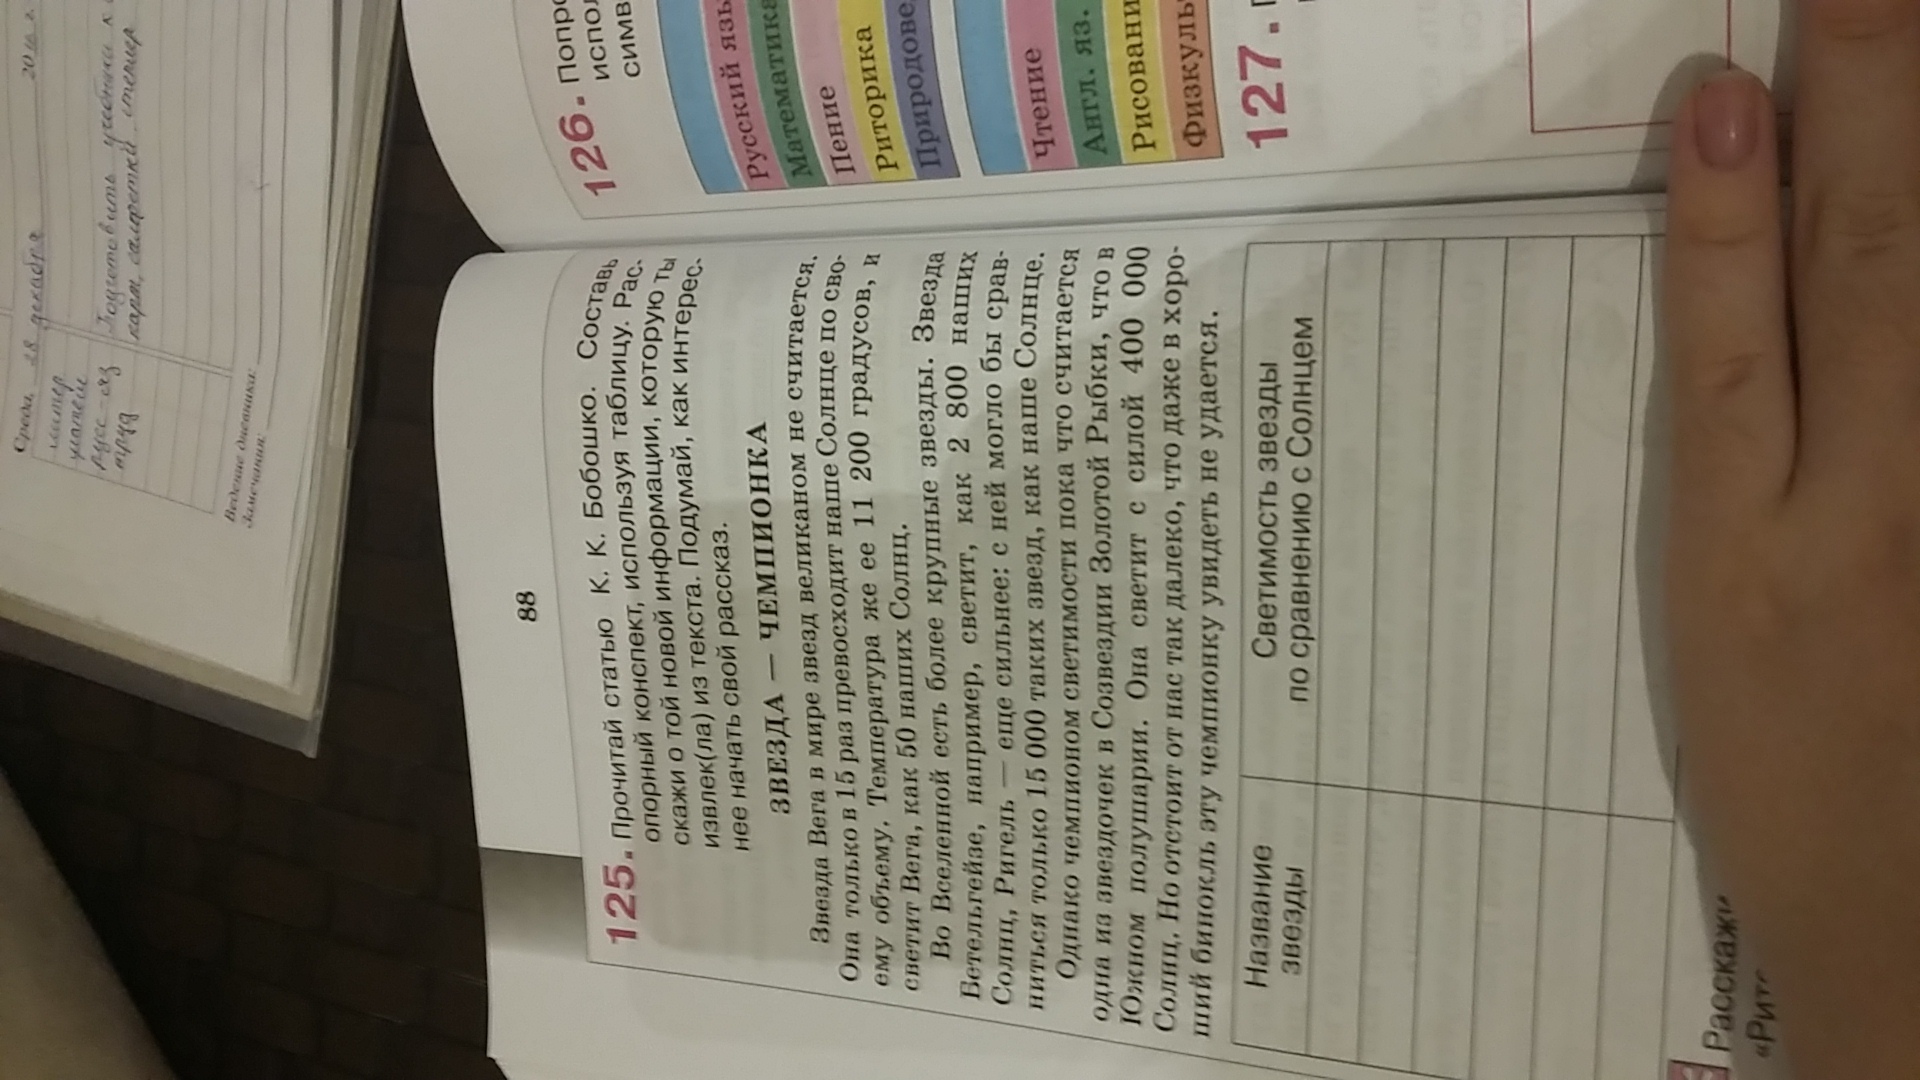 Среда, 28 декабря 20
матем
чтение
русс-яз
труд
Подготовить учебники
карт, салфетки, степлер
Ведение дневника:
Замечания:
88
125. Прочитай статью К. К. Бобошко. Составь
опорный конспект, используя таблицу. Рас-
скажи о той новой информации, которую ты
извлек(ла) из текста. Подумай, как интерес-
нее начать свой рассказ.
ЗВЕЗДА — ЧЕМПИОНКА
Звезда Вега в мире звезд великаном не считается.
Она только в 15 раз превосходит наше Солнце по сво-
ему объему. Температура же ее 11 200 градусов, и
светит Вега, как 50 наших Солнц.
Во Вселенной есть более крупные звезды. Звезда
Бетельгейзе, например, светит, как 2 800 наших
Солнц, Ригель — еще сильнее: с ней могло бы срав-
ниться только 15 000 таких звезд, как наше Солнце.
Однако чемпионом светимости пока что считается
одна из звездочек в Созвездии Золотой Рыбки, что в
Южном полушарии. Она светит с силой 400 000
Солнц. Но отстоит от нас так далеко, что даже в хоро-
ший бинокль эту чемпионку увидеть не удается.
Название
звезды
Светимость звезды
по сравнению с Солнцем
Расскажи
126. Попро
испол
симв
Русский язы
Математика
Пение
Риторика
Природове
Чтение
Англ. яз.
Рисовани
Физкуль
127.